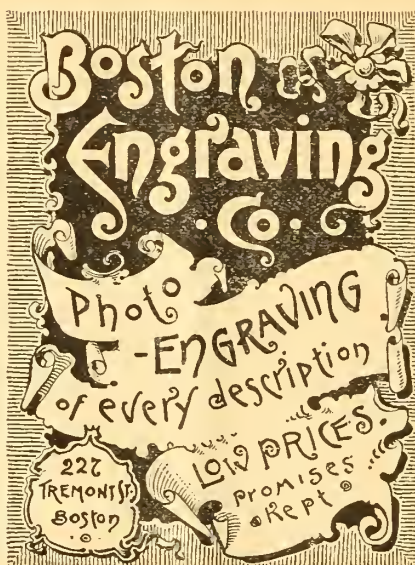 Boston
Engraving
· Co ·
Photo
-ENGRAVING
of every description
LOW PRICES.
Promises
Kept
227
TREMONT ST.
Boston